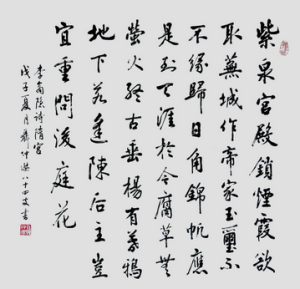 紫泉宮殿鎖煙霞欲
取蕪城作帝家玉璽
不緣歸日角錦帆應
是到天涯於今腐草無
螢火終古垂楊有暮鴉
地下若逢陳后主豈
宜重問後庭花
李商隱詩隋宮
戊子夏月仲八十四叟書